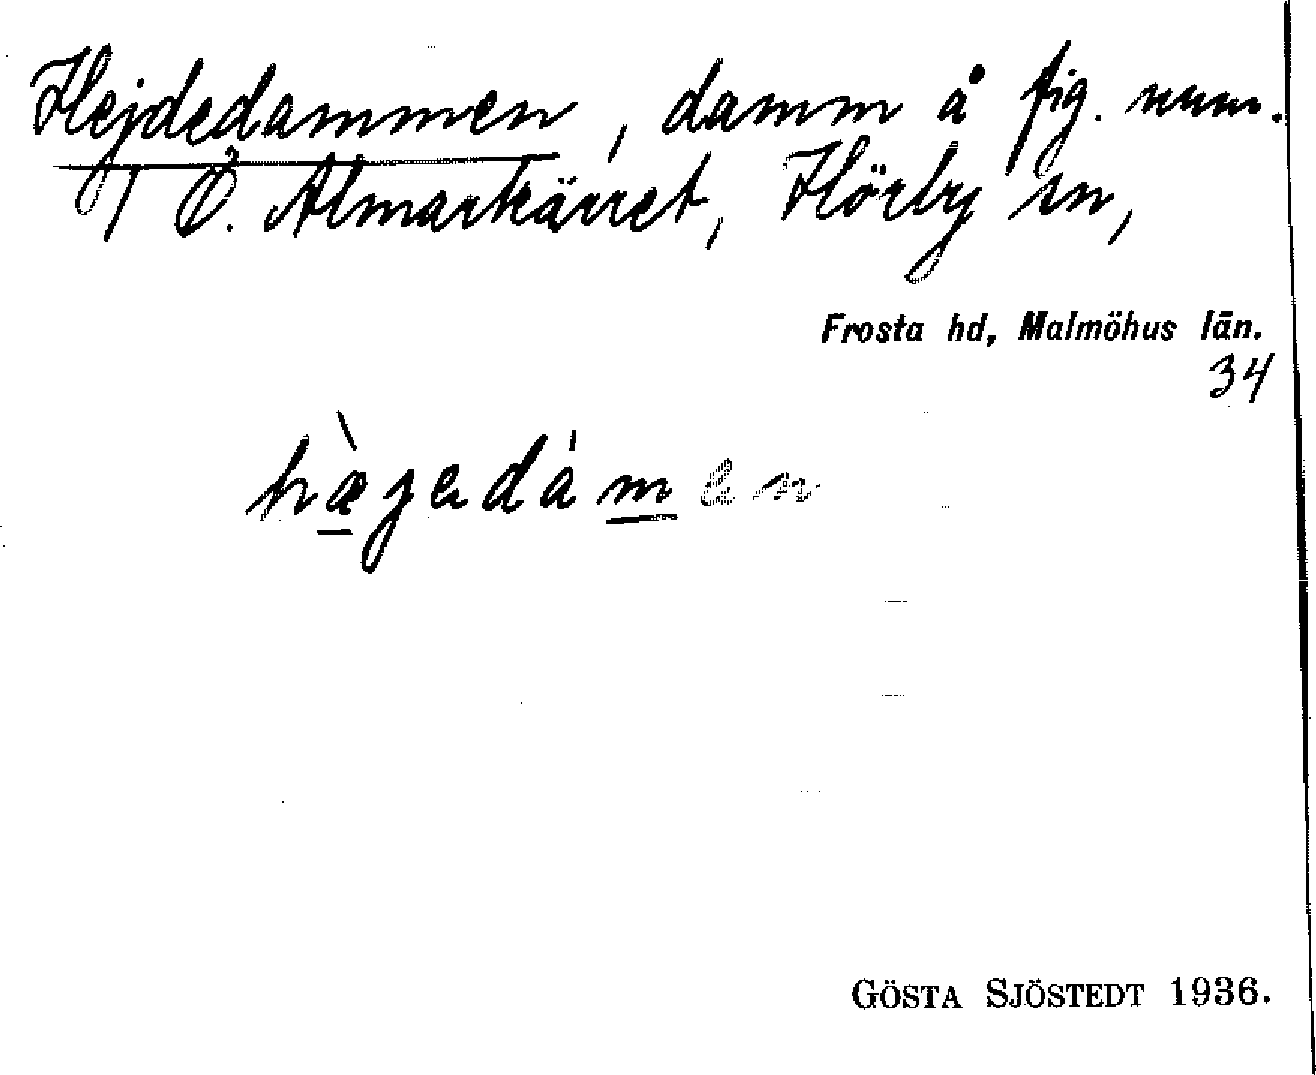 Hejdedammen, damm å fig. num.
1 Ö. Almarkärret, Hörby sn,
Frosta hd, Malmöhus län.
34
hæ̀jedám en
GÖSTA SJÖSTEDT 1936.